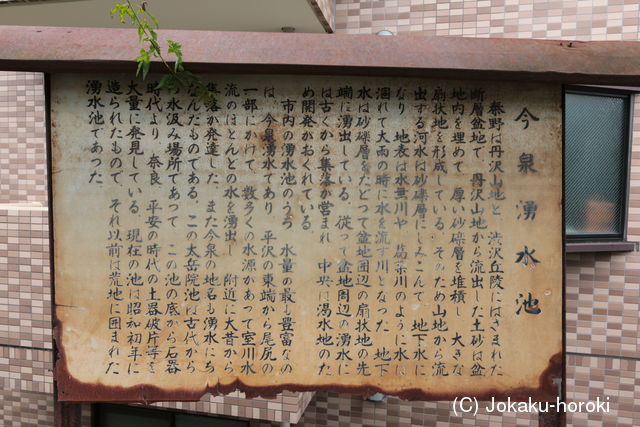 今泉湧水池
秦野は丹沢山地と、渋沢丘陵にはさまれた
断層盆地で、丹沢山地から流出した土砂は盆
地内を埋めて、厚い砂礫層を堆積し、大きな
扇状地を形成している。そのため山地から流
出する河水は砂礫層にしみこんで、地下水に
なり、地表は水無川や、葛葉川のように水は
涸れて大雨の時だけ水を流す川となった。地下
水は砂礫層をたどって盆地周辺の扇状地の先
端に湧出している。従って盆地周辺の湧水に
は古くから集落が営まれ、中央は渇水地のた
め開発がおくれている。
市内の湧水池のうち、水量の最も豊富なの
は、今泉湧水であり、平沢の東端から尾尻の
一部にかけて、数多くの水源があって室川水
流のほとんどの水を湧出し、附近に大昔から
集落が発達した。また今泉の地名も湧水にち
なんだものである。この太岳院池は古代から
の水汲み場所であって、この池の底から石器
時代より、奈良、平安の時代の土器破片等を
大量に発見している。現在の池は昭和初年に
造られたもので、それ以前は荒地に囲まれた
湧水池であった。
(C) Jokaku-horoki